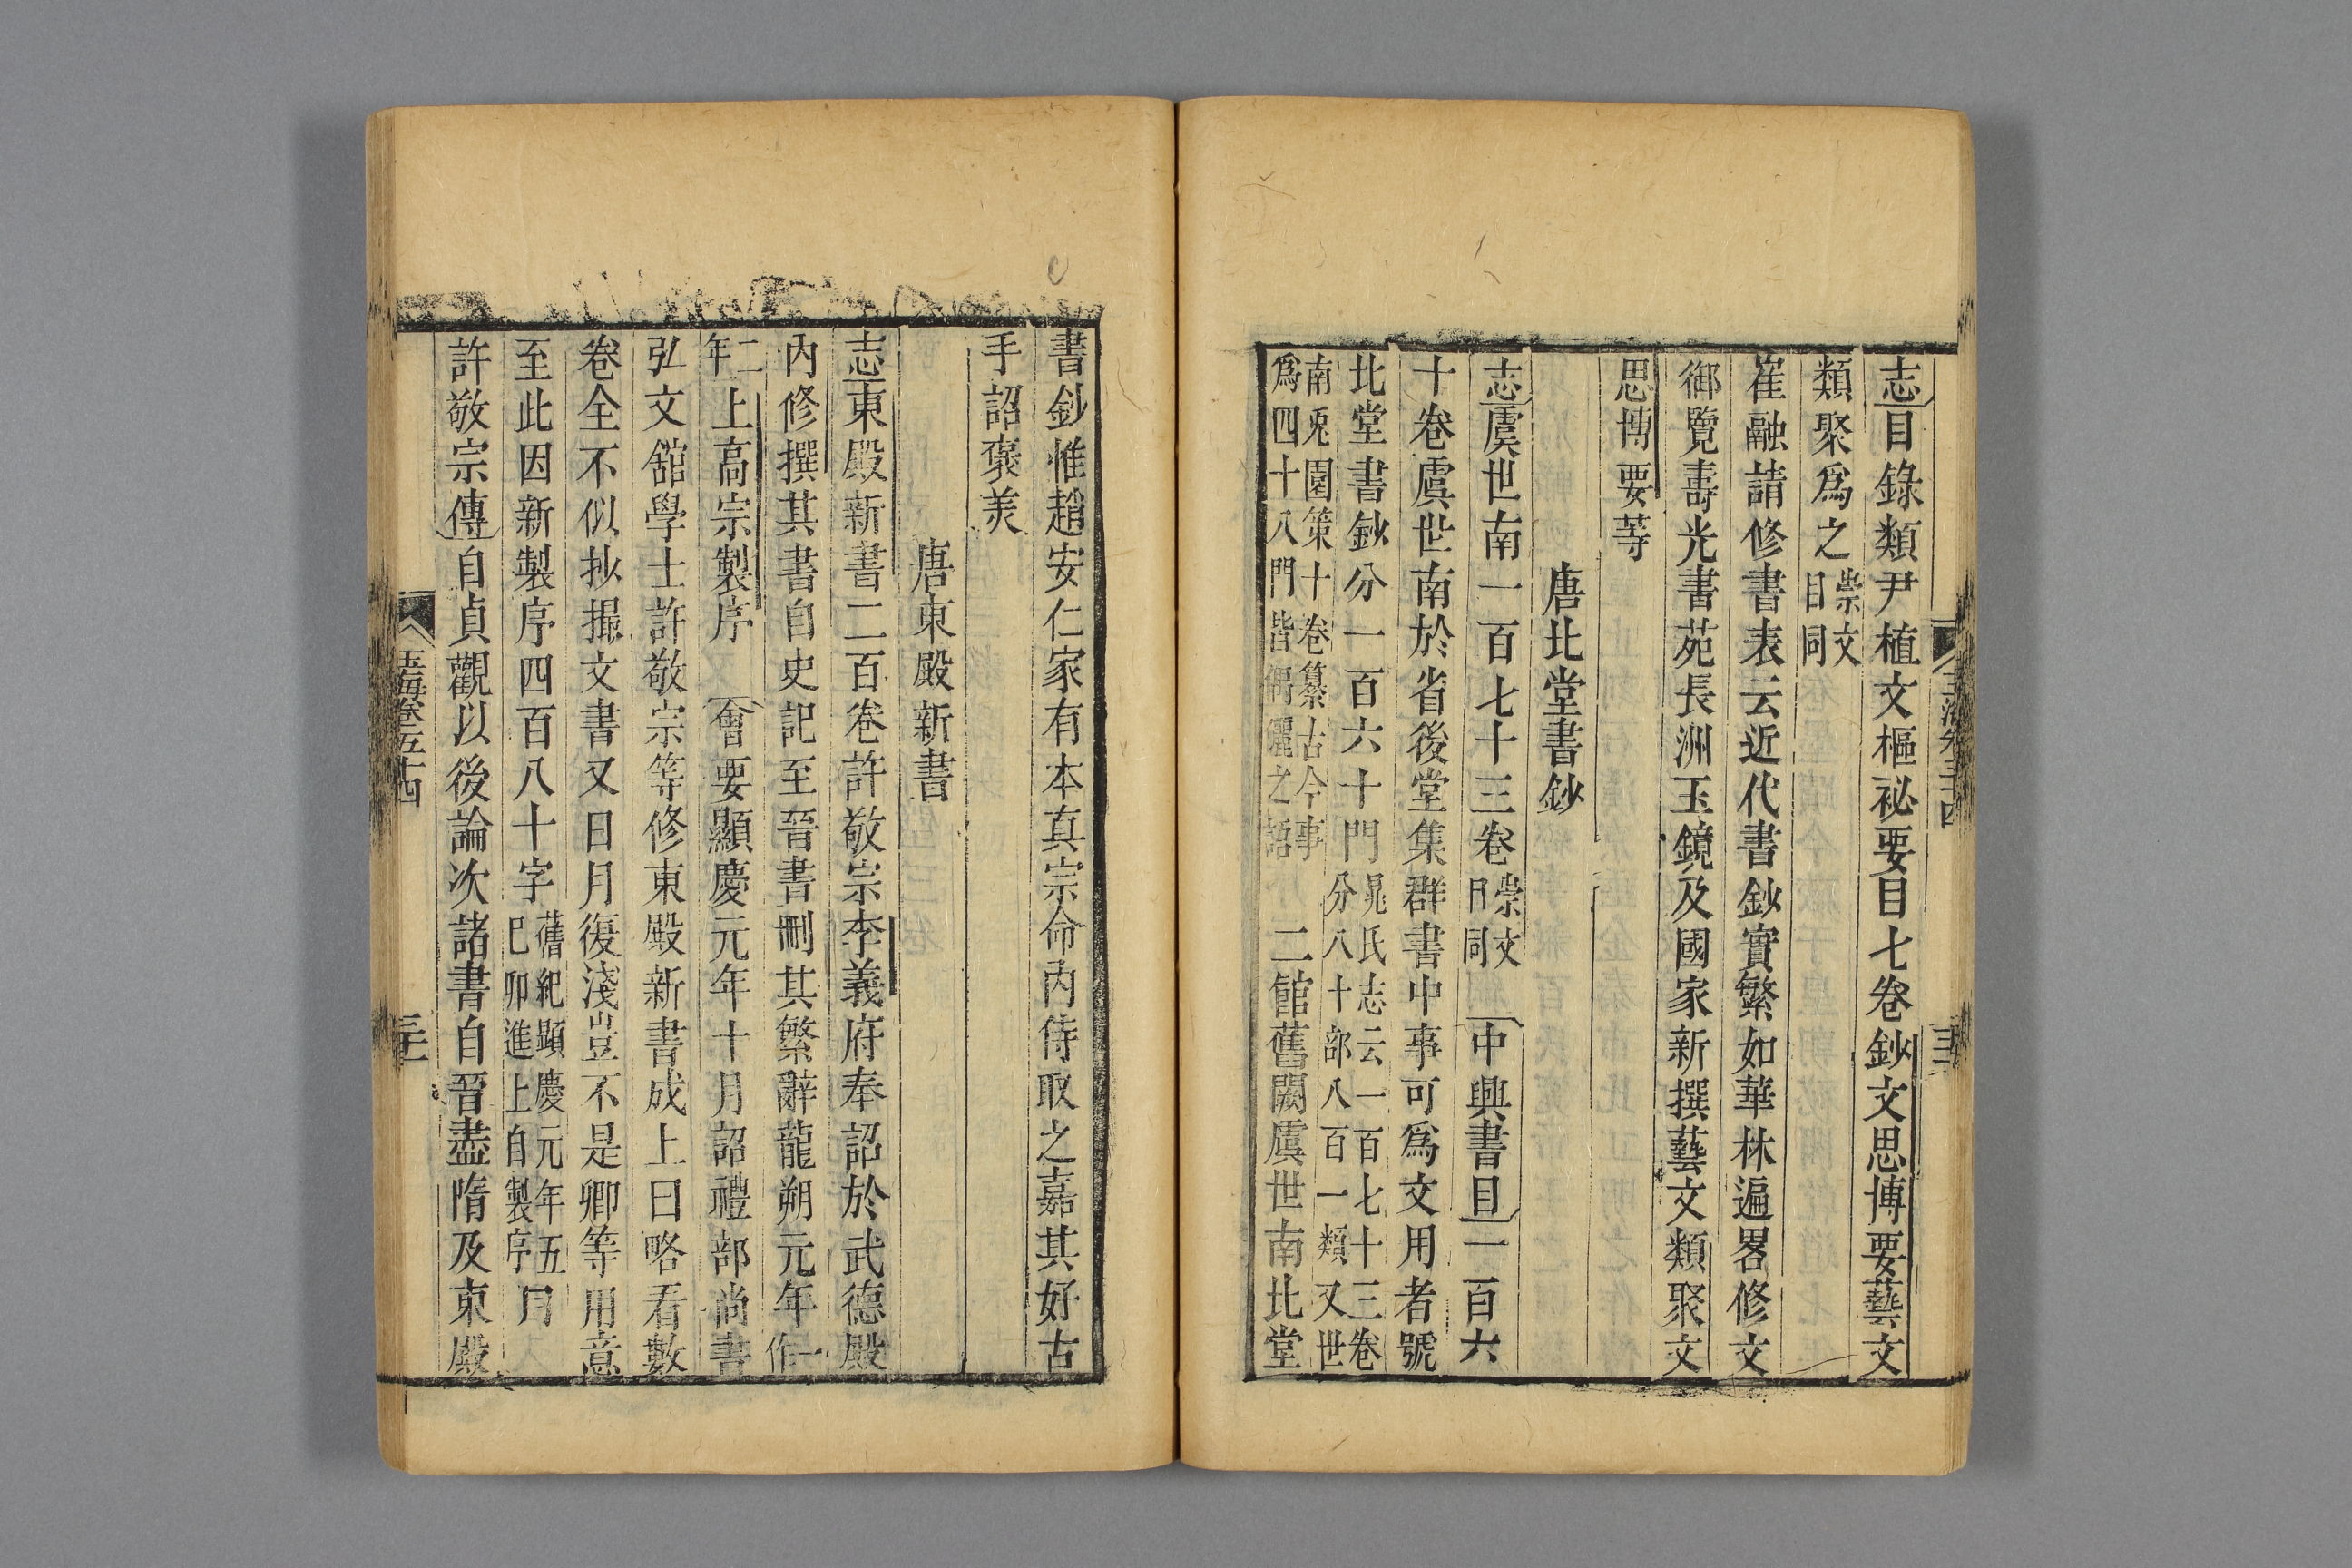 志目錄類尹植文樞祕要目七卷鈔文思博要藝文
類聚爲之崇文目同
崔融請修書表云近代書鈔實繁如華林遍畧修文
御覽壽光書苑長洲玉鏡及國家新撰藝文類聚文
思博要等
唐北堂書鈔
志虞世南一百七十三卷崇文目同中興書目一百六
十卷虞世南於省後堂集群書中事可爲文用者號
北堂書鈔分一百六十門晁氏志云一百七十三卷分八十部八百一類又世
南兎園策十卷纂古今事爲四十八門皆偶儷之語二館舊闕虞世南北堂
書鈔惟趙安仁家有本真宗命內侍取之嘉其好古
手詔褒美
唐東殿新書
志東殿新書二百卷許敬宗李義府奉詔於武德殿
內修撰其書自史記至晉書刪其繁辭龍朔元年一作
二年上高宗製序會要顯慶元年十月詔禮部尚書
弘文舘學士許敬宗等修東殿新書成上曰略看數
卷全不似抄撮文書又日月復淺豈不是卿等用意
至此因新製序四百八十字舊紀顯慶元年五月己卯進上自製序
許敬宗傳自貞觀以後論次諸書自晉盡隋及東殿
玉海卷五十四